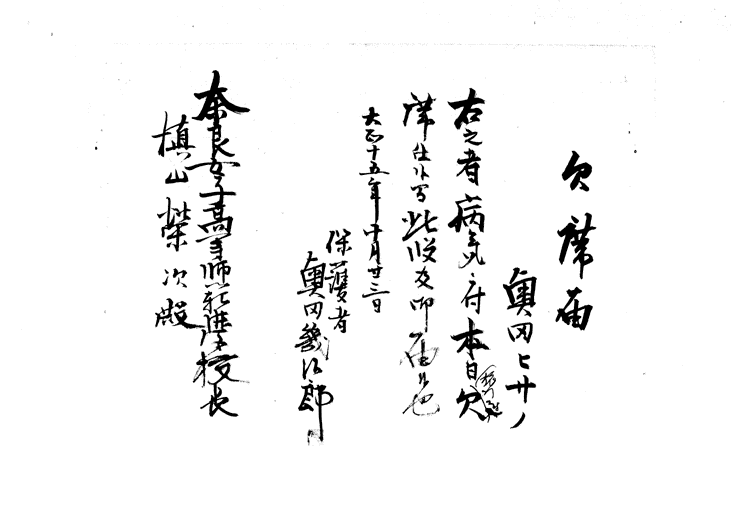 欠席届
奥田ヒサノ
右之者病気ニ付本日欠
席仕候間此段及御届候也
大正十五年十月廿三日
保護者
奥田幾治郎
奈良女子高等師範学校長
槙山栄次殿